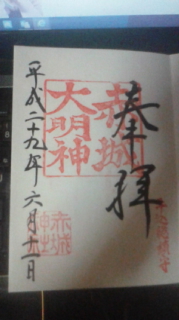 奉拝
赤城
大明神
赤城
神社
平成二十九年六月十一日